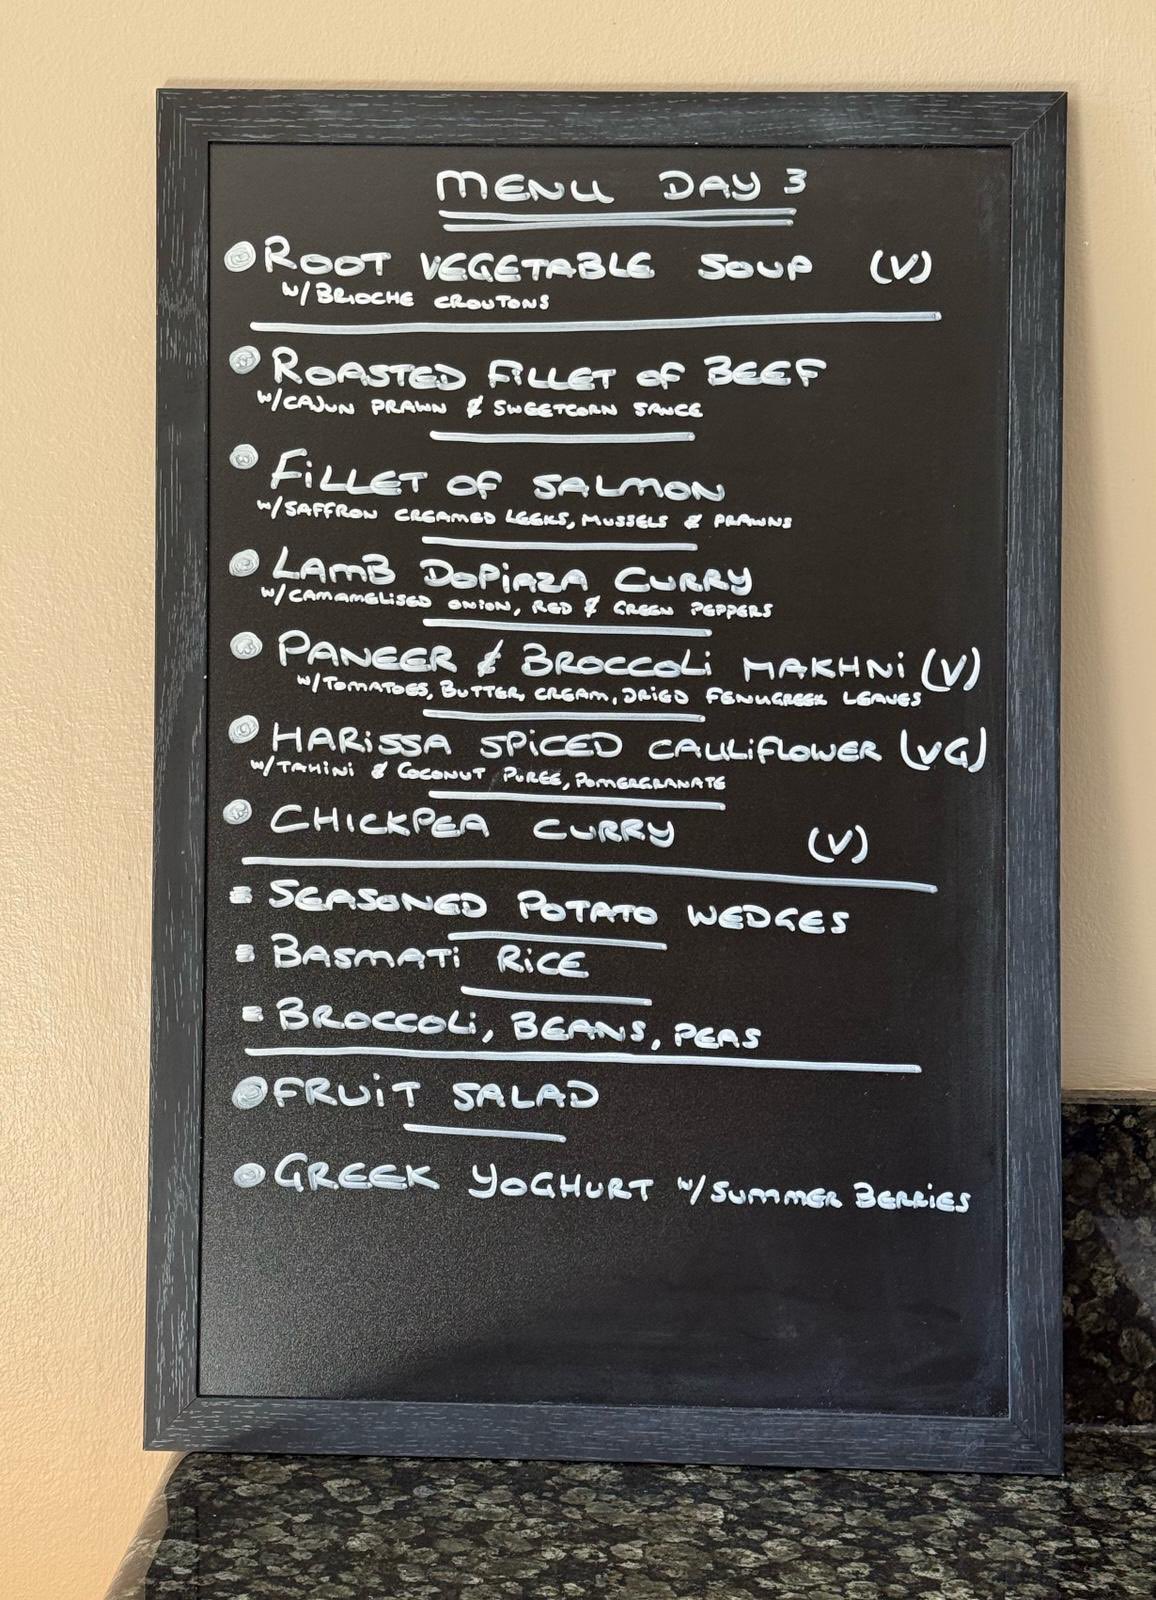 MENU DAY 3
ROOT VEGETABLE SOUP (V)
W/BRIOCHE CROUTONS
ROASTED FILLET OF BEEF
W/CAJUN PRAWN & SWEETCORN SAUCE
FILLET OF SALMON
W/SAFFRON CREAMED LEEKS, MUSSELS & PRAWNS
LAMB DOPIAZA CURRY
W/CAMAMELISED ONION, RED & GREEN PEPPERS
PANEER & BROCCOLI MAKHNI (V)
W/TOMATOES, BUTTER, CREAM, DRIED FENUGREEK LEAVES
HARISSA SPICED CAULIFLOWER (VG)
W/TAHINI & COCONUT PUREE, POMERGRANATE
CHICKPEA CURRY (V)
SEASONED POTATO WEDGES
BASMATI RICE
BROCCOLI, BEANS, PEAS
FRUIT SALAD
GREEK YOGHURT W/SUMMER BERRIES